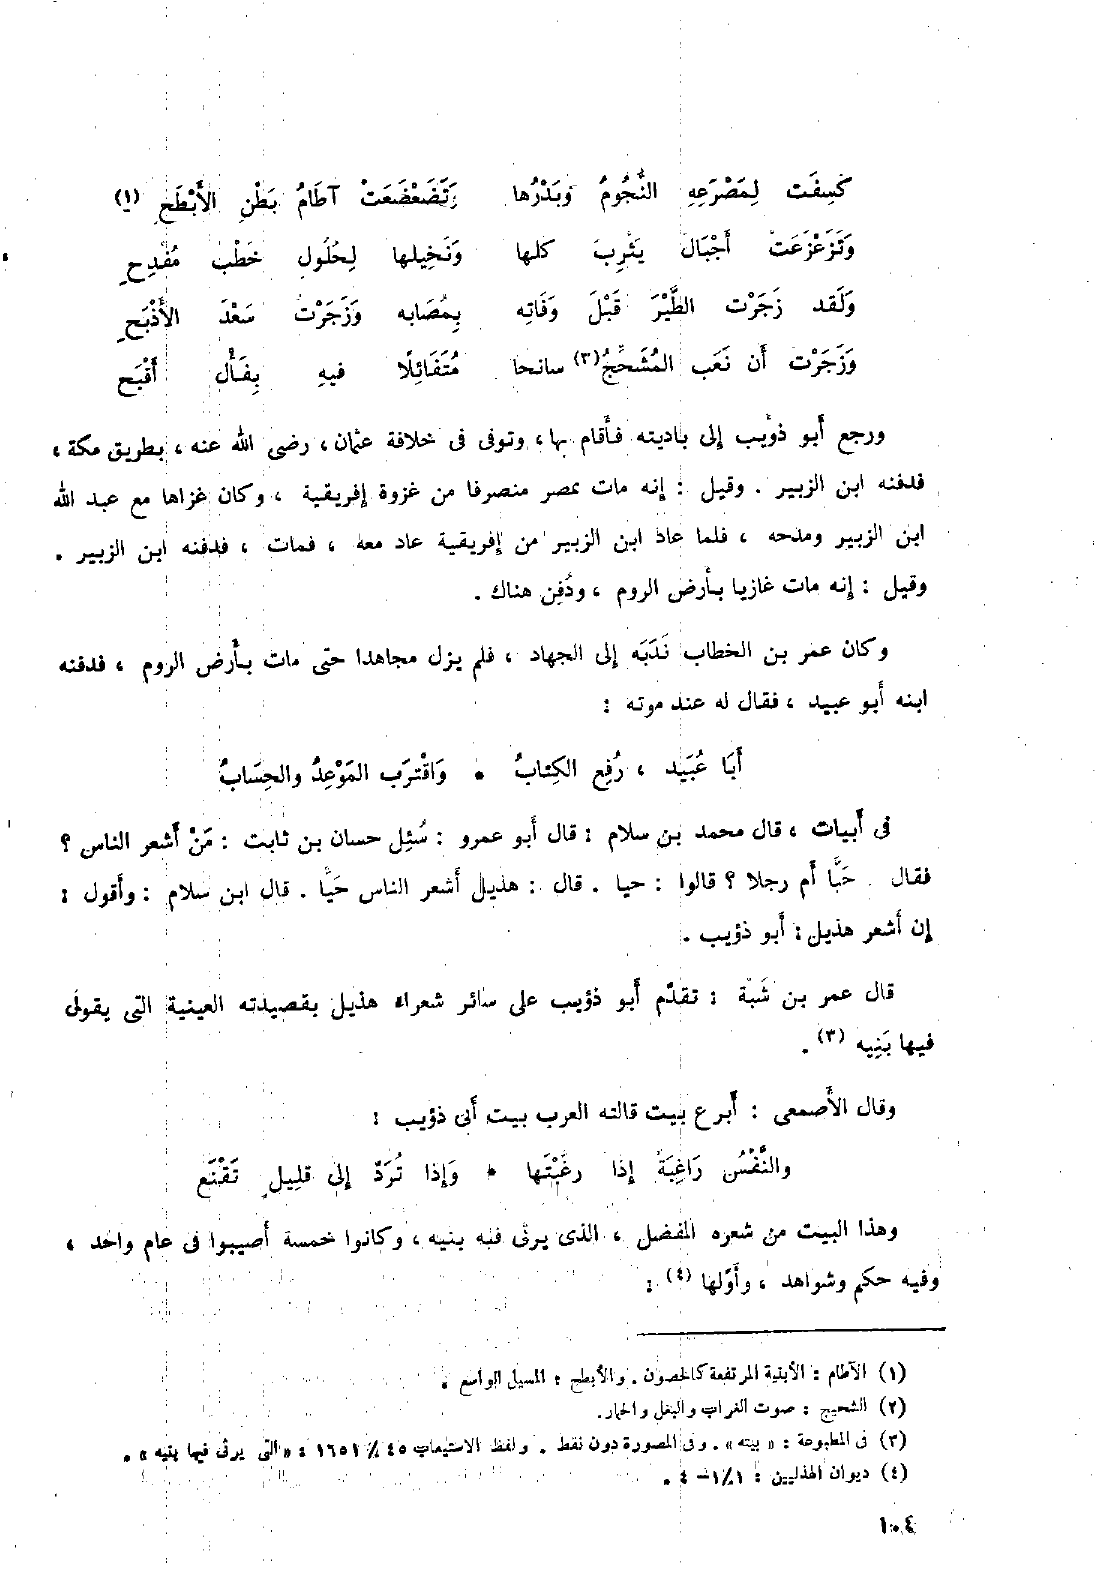 كَسِفَت لِمَصْرَعِهِ النُّجُومُ وَبَدْرُها وَتَضَعْضَعَتْ آطَامُ بَطْنِ الأَبْطَحِ (١)
وَتَزَعْزَعَتْ أَجْبَالُ يَثْرِبَ كلها وَنَخِيلها لِحُلُولِ خَطْب مُفْدِحِ
وَلَقد زَجَرْت الطَّيْرَ قَبْلَ وَفَاتِه بِمُصَابه وَزَجَرْت سَعْدَ الأَذْبَحِ
وَزَجَرْت أَن نَعَب المُشَحِّجُ (٢) سانحا مُتَفَائِلًا فيهِ بِفَأْل أَقْبَح
ورجع أَبو ذؤيب إِلى باديته فأَقام بها ، وتوفى فى خلافة عثمان ، رضى الله عنه ، بطريق مكة ،
فدفنه ابن الزبير . وقيل : إِنه مات بمصر منصرفا من غزوة إِفريقية ، وكان غزاها مع عبد الله
ابن الزبير ومدحه ، فلما عاد ابن الزبير من إِفريقية عاد معه ، فمات ، فدفنه ابن الزبير .
وقيل : إِنه مات غازيا بأَرض الروم ، ودُفِن هناك .
وكان عمر بن الخطاب نَدَبَه إِلى الجهاد ، فلم يزل مجاهدا حتى مات بأَرض الروم ، فدفنه
ابنه أَبو عبيد ، فقال له عند موته :
أَبَا عُبَيد ، رُفِع الكِتابُ • وَاقْتَرَب المَوْعِدُ والحِسَابُ
فى أَبيات ، قال محمد بن سلام : قال أَبو عمرو : سُئِل حسان بن ثابت : مَنْ أَشعر الناس ؟
فقال . حَيًّا أَم رجلا ؟ قالوا : حيا . قال : هذيل أَشعر الناس حَيًّا . قال ابن سلام : وأَقول :
إِن أَشعر هذيل : أَبو ذؤيب .
قال عمر بن شَبَّة : تقدّم أَبو ذؤيب على سائر شعراء هذيل بقصيدته العينية التى يقول
فيها بَنِيه (٣) .
وقال الأَصمعى : أَبرع بيت قالته العرب بيت أَبى ذؤيب :
والنَّفْسُ رَاغِبَةٌ إِذا رغَبْتَها • وَإِذا تُرَدّ إِلى قليلٍ تَقْنَع
وهذا البيت من شعره المفضل ، الذى يرثى فيه بنيه ، وكانوا خمسة أُصيبوا فى عام واحد ،
وفيه حكم وشواهد ، وأَوّلها (٤) :
(١) الآطام : الأبنية المرتفعة كالحصون . والأبطح : المسيل الواسع .
(٢) الشحيج : صوت الغراب والبغل والحمار.
(٣) فى المطبوعة : « بيته » . وفى المصورة دون نقط . ولفظ الاستيعاب ٤٥ / ١٦٥١ : « التى يرثى فيها بنيه » .
(٤) ديوان الهذليين : ١/١ - ٤ .
١٠٤